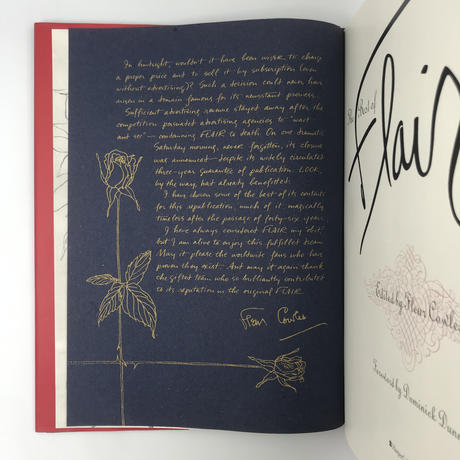 In hindsight, wouldn't it have been wiser to charge
a proper price and to sell it by subscription (even
without advertising)? Such a decision could never have
arisen in a domain famous for its newsstand prowess.
Sufficient advertising revenue stayed away after the
competition persuaded advertising agencies to "wait
and see" — condemning FLAIR to death. On one dramatic
Saturday morning, never forgotten, its closure
was announced — despite its widely circulated
three-year guarantee of publication. LOOK,
by the way, had already benefitted.
I have chosen some of the best of its contents
for this republication, much of it magically
timeless after the passage of forty-six years.
I have always considered FLAIR my obit,
but I am alive to enjoy this fulfilled dream.
May it please the worldwide fans who have
proven they exist. And may it again thank
the gifted team who so brilliantly contributed
to its reputation in the original FLAIR.
Fleur Cowles
The Best of
Flair
Edited by Fleur Cowles
Foreword by Dominick Dunn